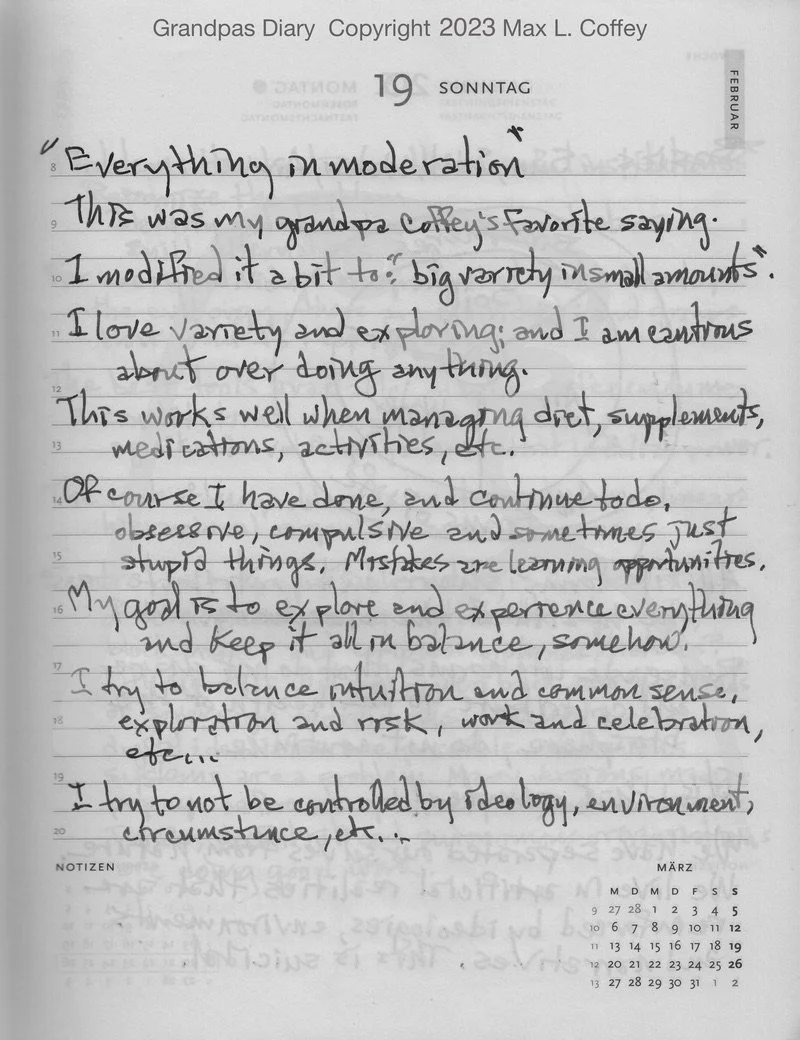 Grandpas Diary Copyright 2023 Max L. Coffey
19 SONNTAG
FEBRUAR
8 "Everything in moderation"
9 This was my grandpa Coffey's favorite saying.
10 I modified it a bit to: "big variety in small amounts".
11 I love variety and exploring; and I am cautious
about over doing anything.
12
This works well when managing diet, supplements,
13 medications, activities, etc.
14 Of course I have done, and continue to do,
obsessive, compulsive and sometimes just
15 stupid things. Mistakes are learning opportunities.
16 My goal is to explore and experience everything
and keep it all in balance, somehow.
17
I try to balance intuition and common sense,
18 exploration and risk, work and celebration,
etc...
19
I try to not be controlled by ideology, environment,
20 circumstance, etc...
NOTIZEN
MÄRZ
M D M D F S S
9 27 28 1 2 3 4 5
10 6 7 8 9 10 11 12
11 13 14 15 16 17 18 19
12 20 21 22 23 24 25 26
13 27 28 29 30 31 1 2